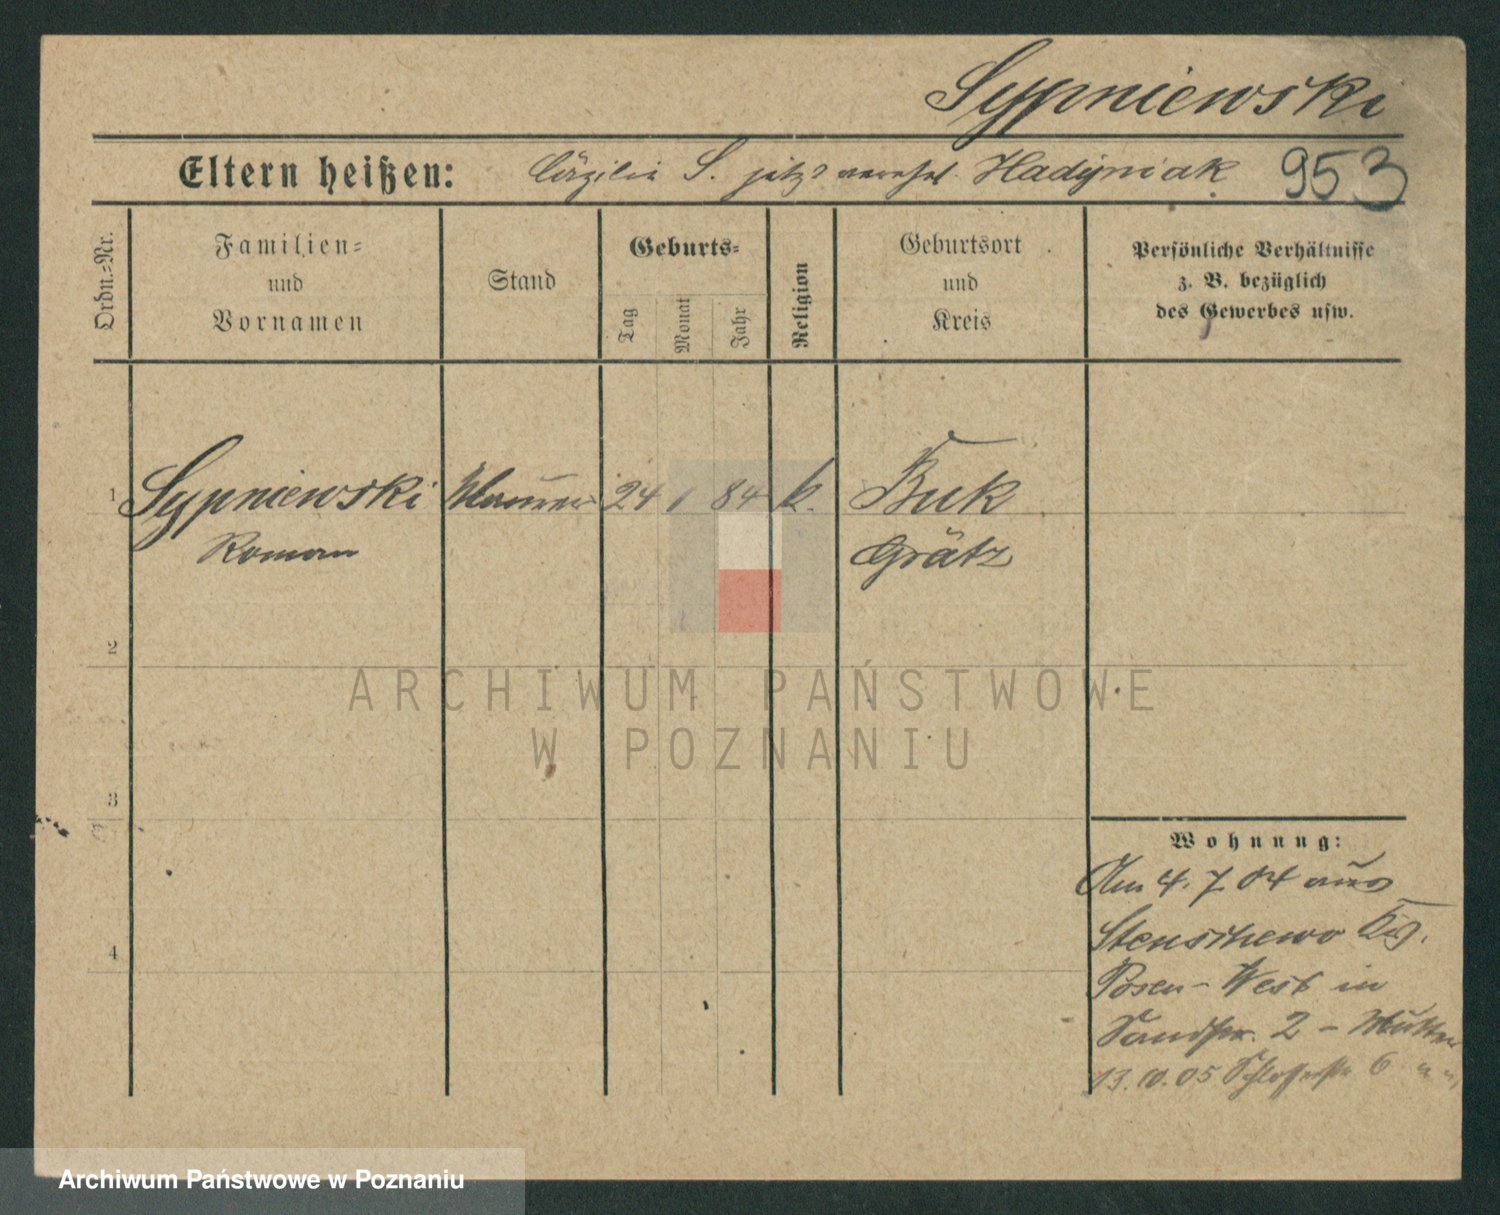 Sypniewski
Eltern heißen: Cäzilie S. jetzt verehel. Hadyniak 953
Ordn.=Nr.
Familien=
und
Vornamen
Stand
Geburts=
Tag
Monat
Jahr
Religion
Geburtsort
und
Kreis
Persönliche Verhältnisse
z. B. bezüglich
des Gewerbes usw.
1 Sypniewski Maurer 24 1 84 k. Buk
Roman Grätz
2
3
4
Wohnung:
Am 4. 7 04 aus
Stenschewo Krs.
Posen-West in
Sandstr. 2 - Mutter
13. 10. 05 Schlosserstr. 6 " "
ARCHIWUM PAŃSTWOWE
W POZNANIU
Archiwum Państwowe w Poznaniu